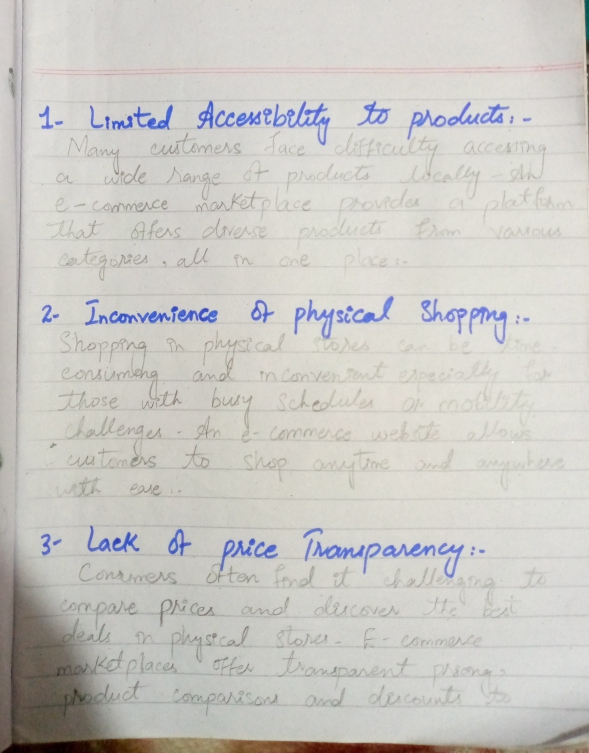 1- Limited Accessibility to products:-
Many customers face difficulty accessing
a wide range of products locally - An
e-commerce marketplace provides a platform
that offers diverse products from various
categories, all in one place:-
2- Inconvenience of physical Shopping:-
Shopping in physical stores can be time
consuming and inconvenient especially for
those with busy schedules or mobility
challenges - An e-commerce website allows
customers to shop anytime and anywhere
with ease..
3- Lack of price Transparency:-
Consumers often find it challenging to
compare prices and discover the best
deals in physical stores - E-commerce
marketplaces offer transparent pricing,
product comparisons and discounts to